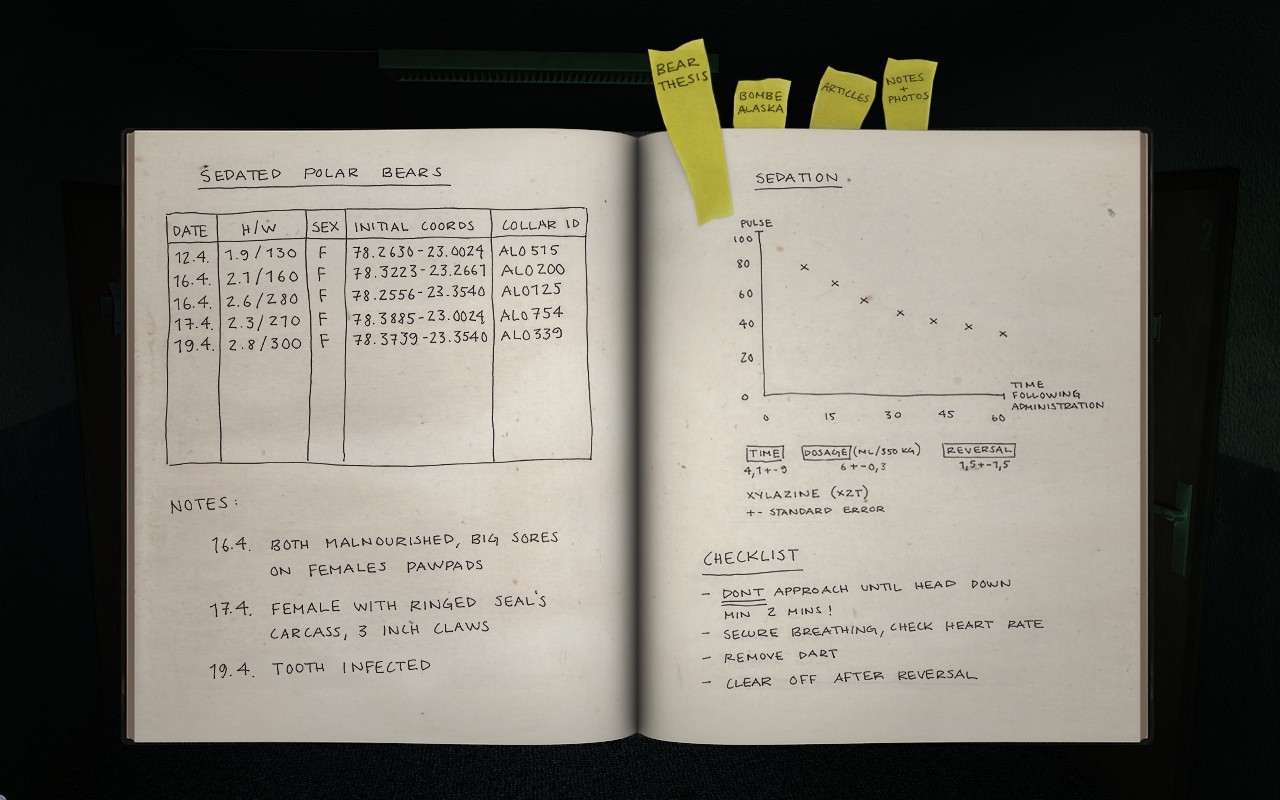 BEAR
THESIS
BOMBE
ALASKA
ARTICLES
NOTES
+
PHOTOS
SEDATED POLAR BEARS
DATE H/W SEX INITIAL COORDS COLLAR ID
12.4. 1.9/130 F 78.2630-23.0024 ALO515
16.4. 2.1/160 F 78.3223-23.2661 ALO200
16.4. 2.6/280 F 78.2556-23.3540 ALO125
17.4. 2.3/270 F 78.3885-23.0024 ALO754
19.4. 2.8/300 F 78.3739-23.3540 ALO339
NOTES:
16.4. BOTH MALNOURISHED, BIG SORES
ON FEMALES PAWPADS
17.4. FEMALE WITH RINGED SEAL'S
CARCASS, 3 INCH CLAWS
19.4. TOOTH INFECTED
SEDATION
PULSE
100
80
60
40
20
0
0 15 30 45 60
TIME
FOLLOWING
ADMINISTRATION
TIME DOSAGE (ML/350 KG) REVERSAL
4,1+-9 6+-0,3 1,5+-1,5
XYLAZINE (XZT)
+- STANDARD ERROR
CHECKLIST
- DONT APPROACH UNTIL HEAD DOWN
MIN 2 MINS!
- SECURE BREATHING, CHECK HEART RATE
- REMOVE DART
- CLEAR OFF AFTER REVERSAL